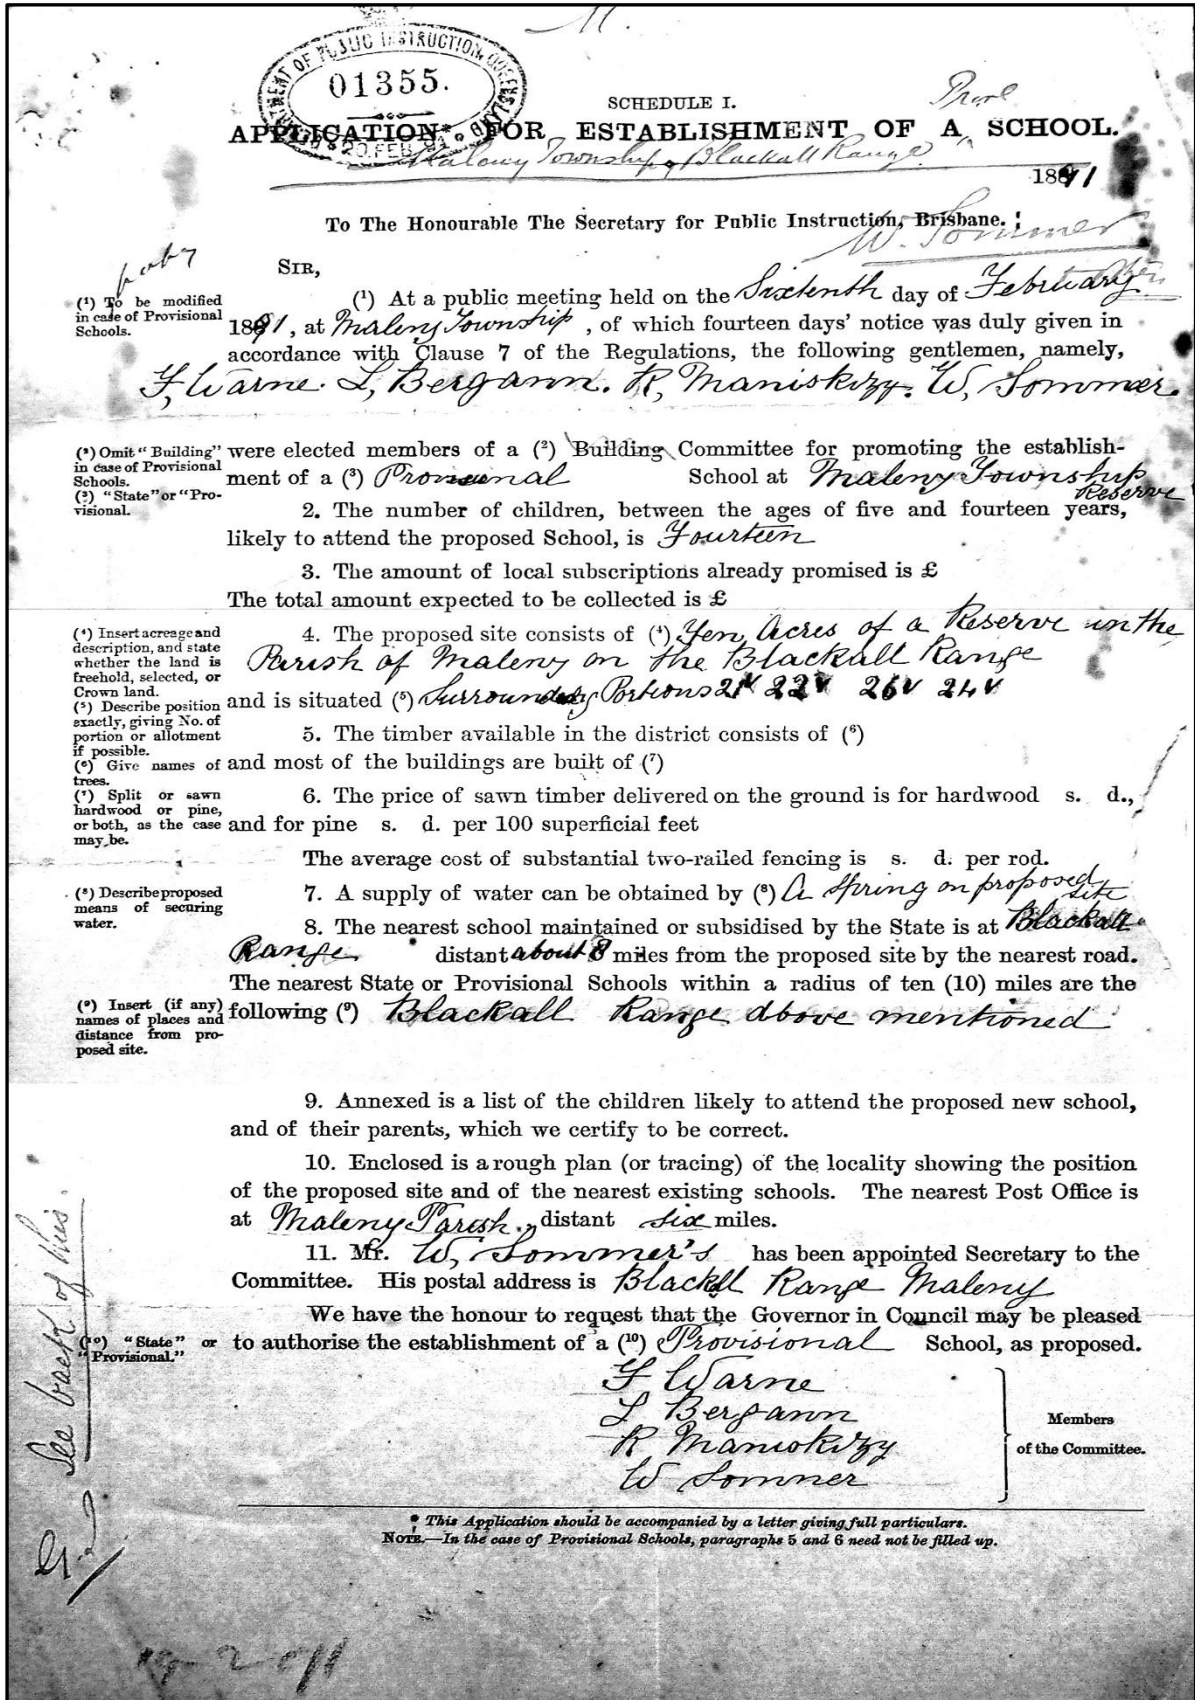 DEPARTMENT OF PUBLIC INSTRUCTION, QUEENSLAND
01355.
20 FEB 91
SCHEDULE I.
Provl
APPLICATION* FOR ESTABLISHMENT OF A SCHOOL.
Maleny Township, Blackall Range
1891
To The Honourable The Secretary for Public Instruction, Brisbane.
W. Sommer
SIR,
(1) To be modified in case of Provisional Schools.
(1) At a public meeting held on the Sixtenth day of February
1891, at Maleny Township, of which fourteen days' notice was duly given in
accordance with Clause 7 of the Regulations, the following gentlemen, namely,
F, Warne. L, Bergann. R, Maniskizy. W, Sommer.
(2) Omit "Building" in case of Provisional Schools.
(3) "State" or "Provisional.
were elected members of a (2) Building Committee for promoting the establish-
ment of a (3) Provisional School at Maleny Township
Reserve
2. The number of children, between the ages of five and fourteen years,
likely to attend the proposed School, is Fourteen
3. The amount of local subscriptions already promised is £
The total amount expected to be collected is £
(4) Insert acreage and description, and state whether the land is freehold, selected, or Crown land.
4. The proposed site consists of (4) Yen Acres of a Reserve in the
Parish of Maleny on the Blackall Range
(5) Describe position exactly, giving No. of portion or allotment if possible.
and is situated (5) Surrounding Portions 21v 22v 26v 24v
5. The timber available in the district consists of (6)
(6) Give names of trees.
and most of the buildings are built of (7)
(7) Split or sawn hardwood or pine, or both, as the case may be.
6. The price of sawn timber delivered on the ground is for hardwood s. d.,
and for pine s. d. per 100 superficial feet
The average cost of substantial two-railed fencing is s. d. per rod.
(8) Describe proposed means of securing water.
7. A supply of water can be obtained by (8) A Spring on proposed
site
8. The nearest school maintained or subsidised by the State is at Blackall
Range distant about 8 miles from the proposed site by the nearest road.
The nearest State or Provisional Schools within a radius of ten (10) miles are the
(9) Insert (if any) names of places and distance from proposed site.
following (9) Blackall Range above mentioned
9. Annexed is a list of the children likely to attend the proposed new school,
and of their parents, which we certify to be correct.
10. Enclosed is a rough plan (or tracing) of the locality showing the position
of the proposed site and of the nearest existing schools. The nearest Post Office is
at Maleny Parish, distant six miles.
11. Mr. W, Sommer's has been appointed Secretary to the
Committee. His postal address is Blackll Range Maleny
We have the honour to request that the Governor in Council may be pleased
(10) "State" or "Provisional."
to authorise the establishment of a (10) Provisional School, as proposed.
F Warne
L Bergann
R Maniskizy
W Sommer
Members
of the Committee.
See back of this.
* This Application should be accompanied by a letter giving full particulars.
NOTE.—In the case of Provisional Schools, paragraphs 5 and 6 need not be filled up.